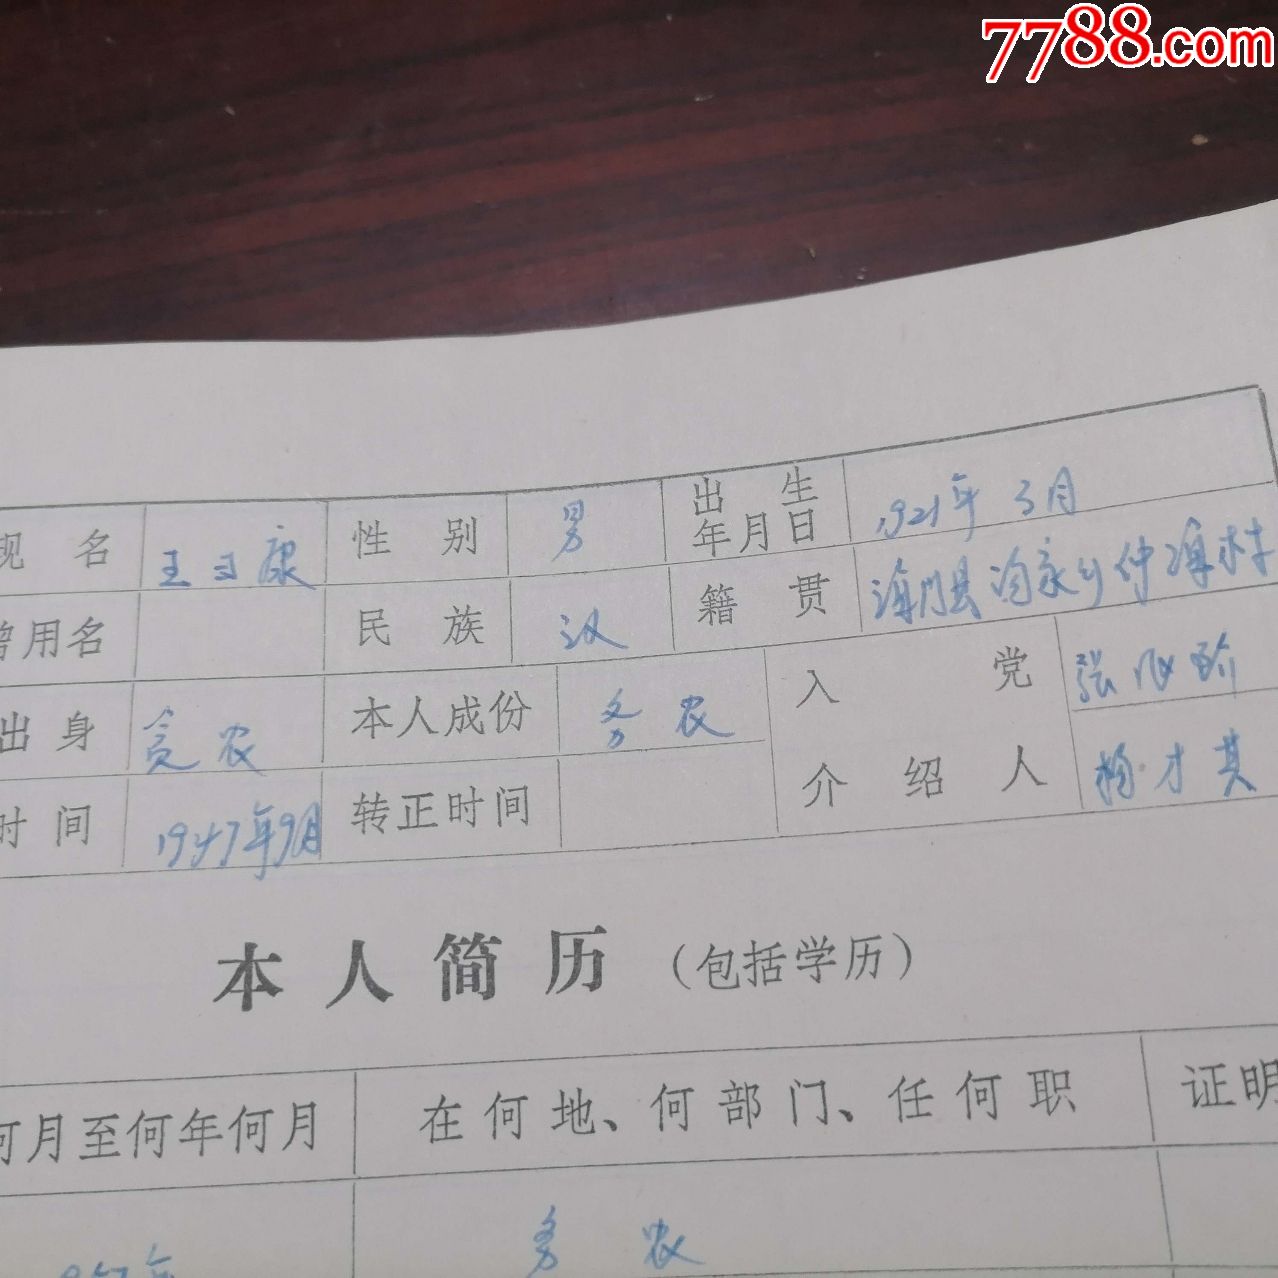 7788.com
现 名 王 康 性 别 男 出 生 年月日 1921年3月
曾用名 民 族 汉 籍 贯 海门县 乡 村
出 身 贫农 本人成份 务农 入 党 张
时 间 1947年9月 转正时间 介 绍 人 杨才其
本 人 简 历 (包括学历)
何月至何年何月 在 何 地、何 部 门、任 何 职 证明
年 务 农